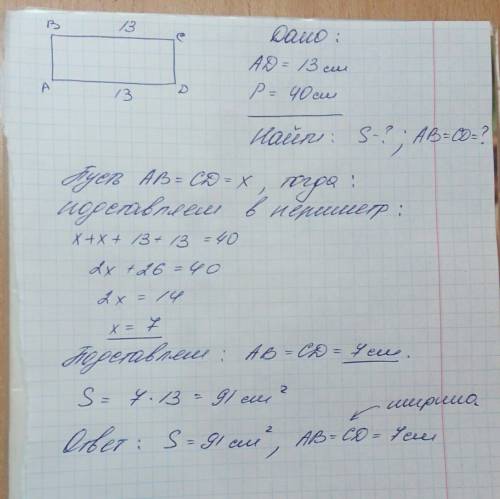 B 13 C
A 13 D
Дано:
AD = 13 см
P = 40 см
Найти: S-?; AB=CD=?
Пусть AB=CD=x, тогда:
подставляем в периметр:
x+x+13+13=40
2x+26=40
2x=14
x=7
Подставляем: AB=CD=7см.
S=7·13=91см²
ширина
Ответ: S=91см², AB=CD=7см